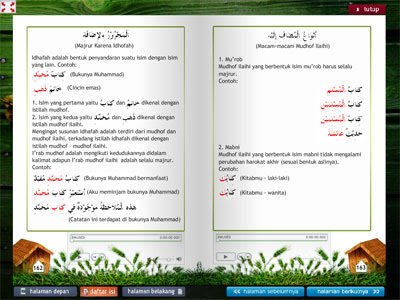 tutup
اَلْمَجْرُوْرُ بِالإِضَافَةِ
(Majrur Karena Idhofah)
Idhafah adalah bentuk penyandaran suatu isim dengan isim
yang lain. Contoh:
كِتَابُ مُحَمَّدٍ (Bukunya Muhammad)
خَاتَمُ ذَهَبٍ (Cincin emas)
1. Isim yang pertama yaitu كِتَابُ dan خَاتَمُ dikenal dengan
istilah mudhof.
2. Isim yang kedua yaitu مُحَمَّدٍ dan ذَهَبٍ dikenal dengan
istilah mudhof ilaihi.
Mengingat susunan idhafah adalah terdiri dari mudhof dan
mudhof ilaihi, terkadang istilah idhafah dikenal dengan
istilah mudhof - mudhof ilaihi.
I'rab mudhof adalah mengikuti kedudukannya didalam
kalimat adapun I'rab mudhof ilaihi adalah selalu majrur.
Contoh:
كِتَابُ مُحَمَّدٍ مُفِيْدٌ (Bukunya Muhammad bermanfaat)
أَسْتَعِيْرُ كِتَابَ مُحَمَّدٍ (Aku meminjam bukunya Muhammad)
هَذِهِ الْمُلاَحَظَةُ مَوْجُوْدَةٌ فِي كِتَابِ مُحَمَّدٍ
(Catatan ini terdapat di bukunya Muhammad)
162
أَنْوَاعُ الْمُضَافِ إِلَيْهِ
(Macam-macam Mudhof Ilaihi)
1. Mu'rob
Mudhof ilaihi yang berbentuk isim mu'rob harus selalu
majrur.
Contoh:
كِتَابُ الْمُسْلِمِ
كِتَابُ الْمُسْلِمَيْنِ
كِتَابُ الْمُسْلِمِيْنَ
حَدِيْثُ عَائِشَةَ
2. Mabni
Mudhof ilaihi yang berbentuk isim mabni tidak mengalami
perubahan harokat akhir (sesuai bentuk asilnya). Contoh:
كِتَابُكَ (Kitabmu - laki-laki)
كِتَابُكِ (Kitabmu - wanita)
163
halaman depan
daftar isi
halaman belakang
halaman sebelumnya
halaman berikutnya